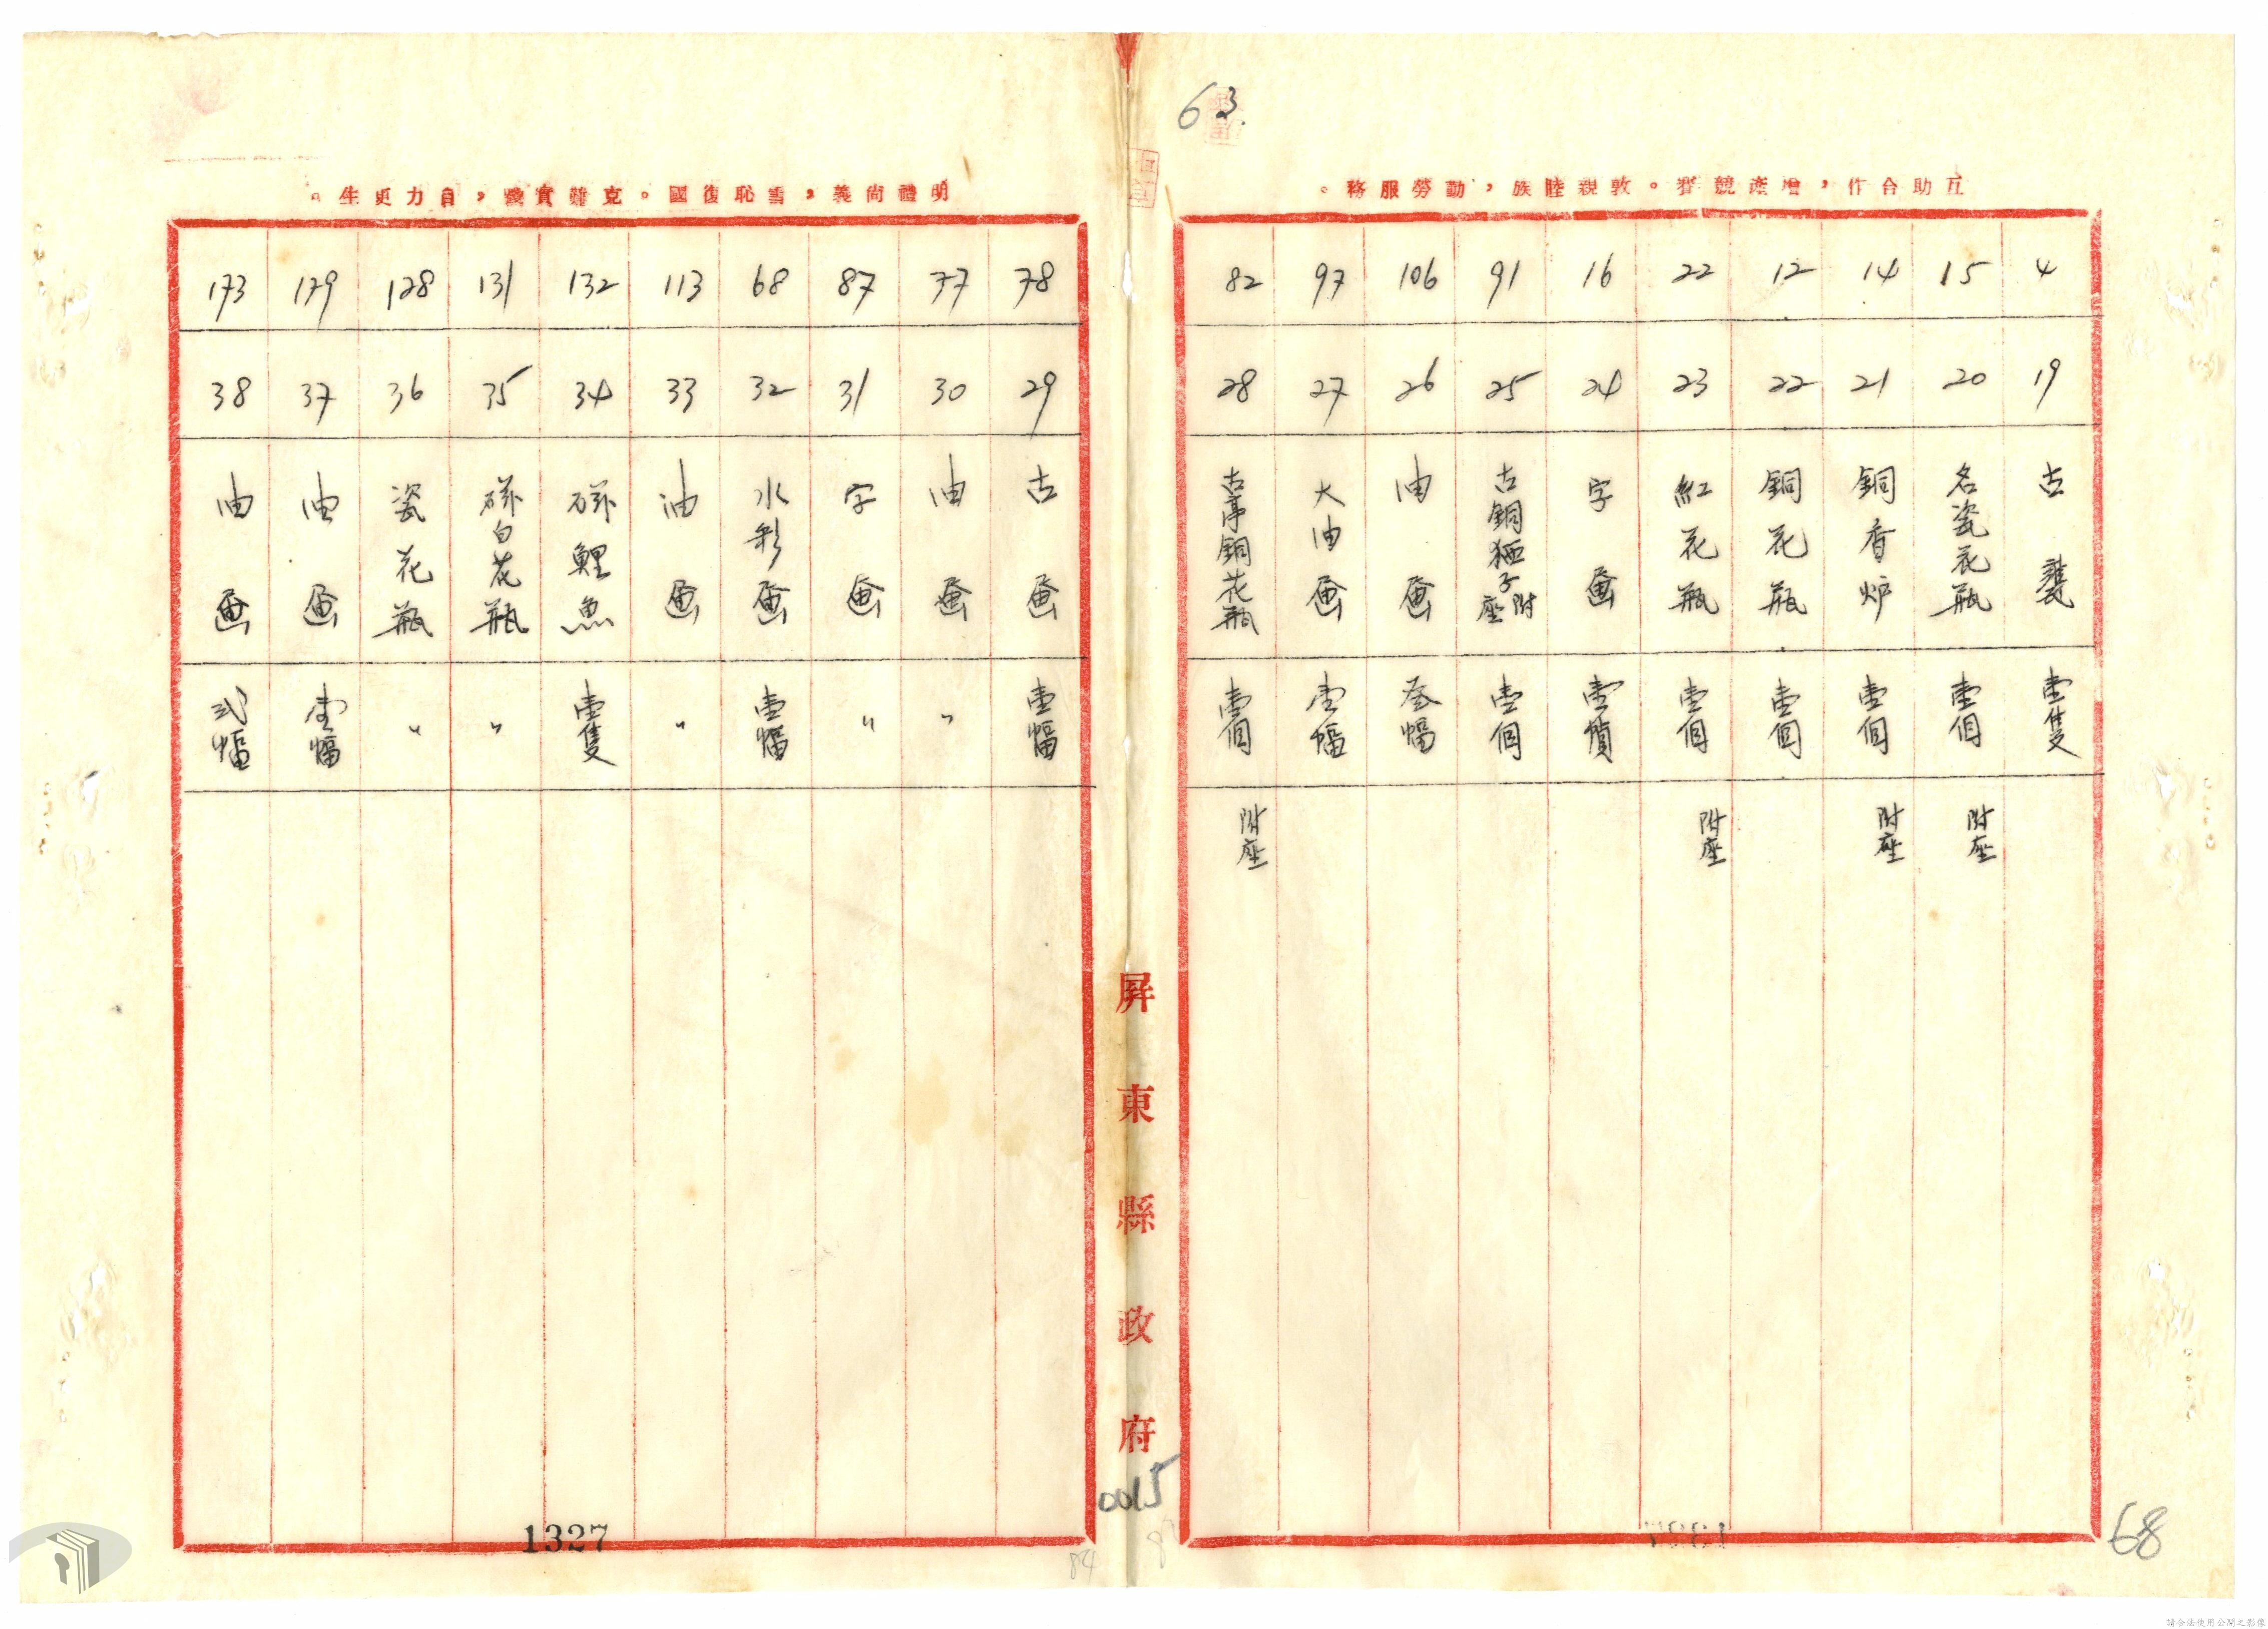 63.
互助合作，增產競賽。敦親睦族，勤勞服務。
4 19 古甕 壹隻
15 20 名瓷花瓶 壹個 附座
14 21 銅香炉 壹個 附座
12 22 銅花瓶 壹個
22 23 紅花瓶 壹個 附座
16 24 字画 壹幀
91 25 古銅獅子附座 壹個
106 26 油画 叁幅
97 27 大油画 壹幅
82 28 古亭銅花瓶 壹個 附座
屏東縣政府
0015
明禮尚義，雪恥復國。克難實踐，自力更生。
78 29 古画 壹幅
77 30 油画 〃
87 31 字画 〃
68 32 水彩画 壹幅
113 33 油画 〃
132 34 磁鯉魚 壹隻
131 35 磁白花瓶 〃
128 36 瓷花瓶 〃
129 37 油画 壹幅
173 38 油画 弍幅
1327
68
84
請合法使用公開之影像